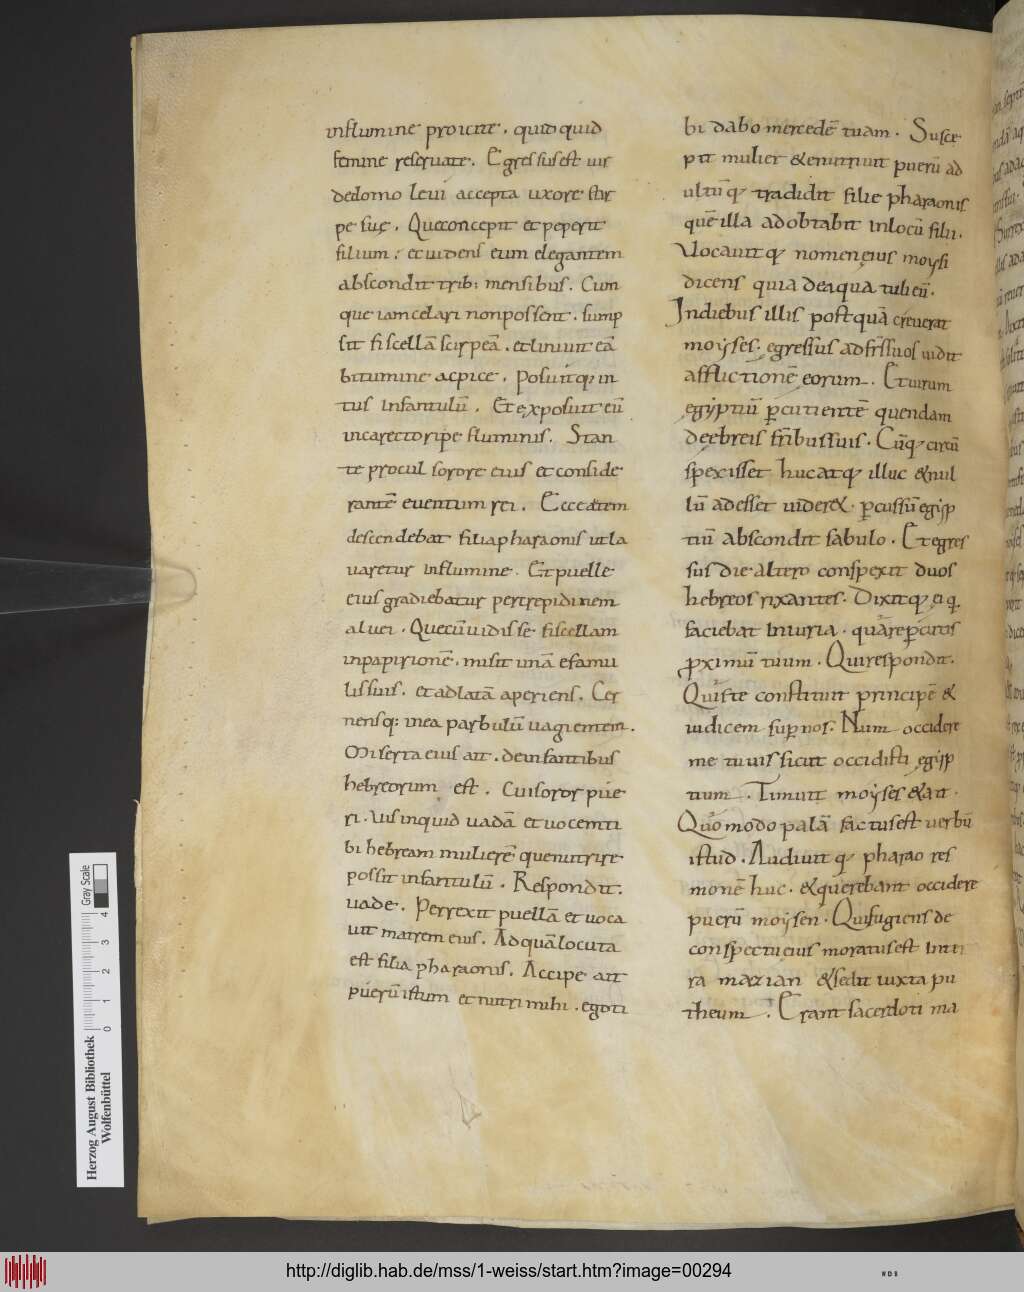 influmine proicite. quidquid
femine reseruate. Egressus est uir
dedomo leui accepta uxore stir
pe suę. Queconcepit et peperit
filium. et uidens eum elegantem
abscondit trib; mensibus. Cum
que iam celari non possent. sump
sit fiscellā scirpeā. et liniuit eā
bitumine acpice. Posuitq; in
tus infantulū. Et exposuit eū
incarecto ripe fluminis. Stan
te procul sorore eius et conside
rante euentum rei. Ecce autem
descendebat filia pharaonis ut la
uaretur influmine. Et puelle
eius gradiebatur per trepidinem
aluei. Quecū uidisse fiscellam
inpapirionē. misit unā e famu
lis suis. et adlatā aperiens. Cer
nensq: inea paruulū uagientem.
Miserta eius ait. deinfantibus
hebreorum est. Cui soror pue
ri. Uis inquid uadā et uocem ti
bi hebream mulierē que nutrire
possit infantulū. Respondit.
uade. Perrexit puellā et uoca
uit matrem eius. Ad quā locuta
est filia pharaonis. Accipe ait
puerū istum et nutri mihi. ego ti
bi dabo mercedē tuam. Susce
pit mulier & enutriuit puerū ad
ultūq; tradidit filie pharaonis
quē illa adobtabit inlocū filii.
Uocauitq; nomen eius moysi
dicens quia de aqua tuli eū.
Indiebus illis postquā creuerat
moyses. egressus ad fr̄s suos uidit
afflictionē eorum. Et uirum
egiptiū ꝑcutientē quendam
de ebreis fr̄ibus suis. Cūq; circū
spexisset huc atq; illuc & nul
lū adesset uider&. ꝑcussū egip
tiū abscondit sabulo. Et egres
sus die altero conspexit duos
hebreos rixantes. Dixitq; ei q.
faciebat iniuria. quare ꝑcutis
ꝓximū tuum. Qui respondit.
Quis te constituit principē &
iudicem suꝑ nos. Num occidere
me tu uis sicut occidisti egip
tium. Timuit moyses & ait.
Quomodo palā factus est uerbū
istud. Audiuit q; pharao res
monē huc. & querebant occidere
puerū moysen. Qui fugiens de
conspectu eius moratus est in ter
ra mazian & sedit iuxta pu
theum. Erant sacerdoti ma
Herzog August Bibliothek
Wolfenbüttel
Gray Scale
0 1 2 3 4
http://diglib.hab.de/mss/1-weiss/start.htm?image=00294